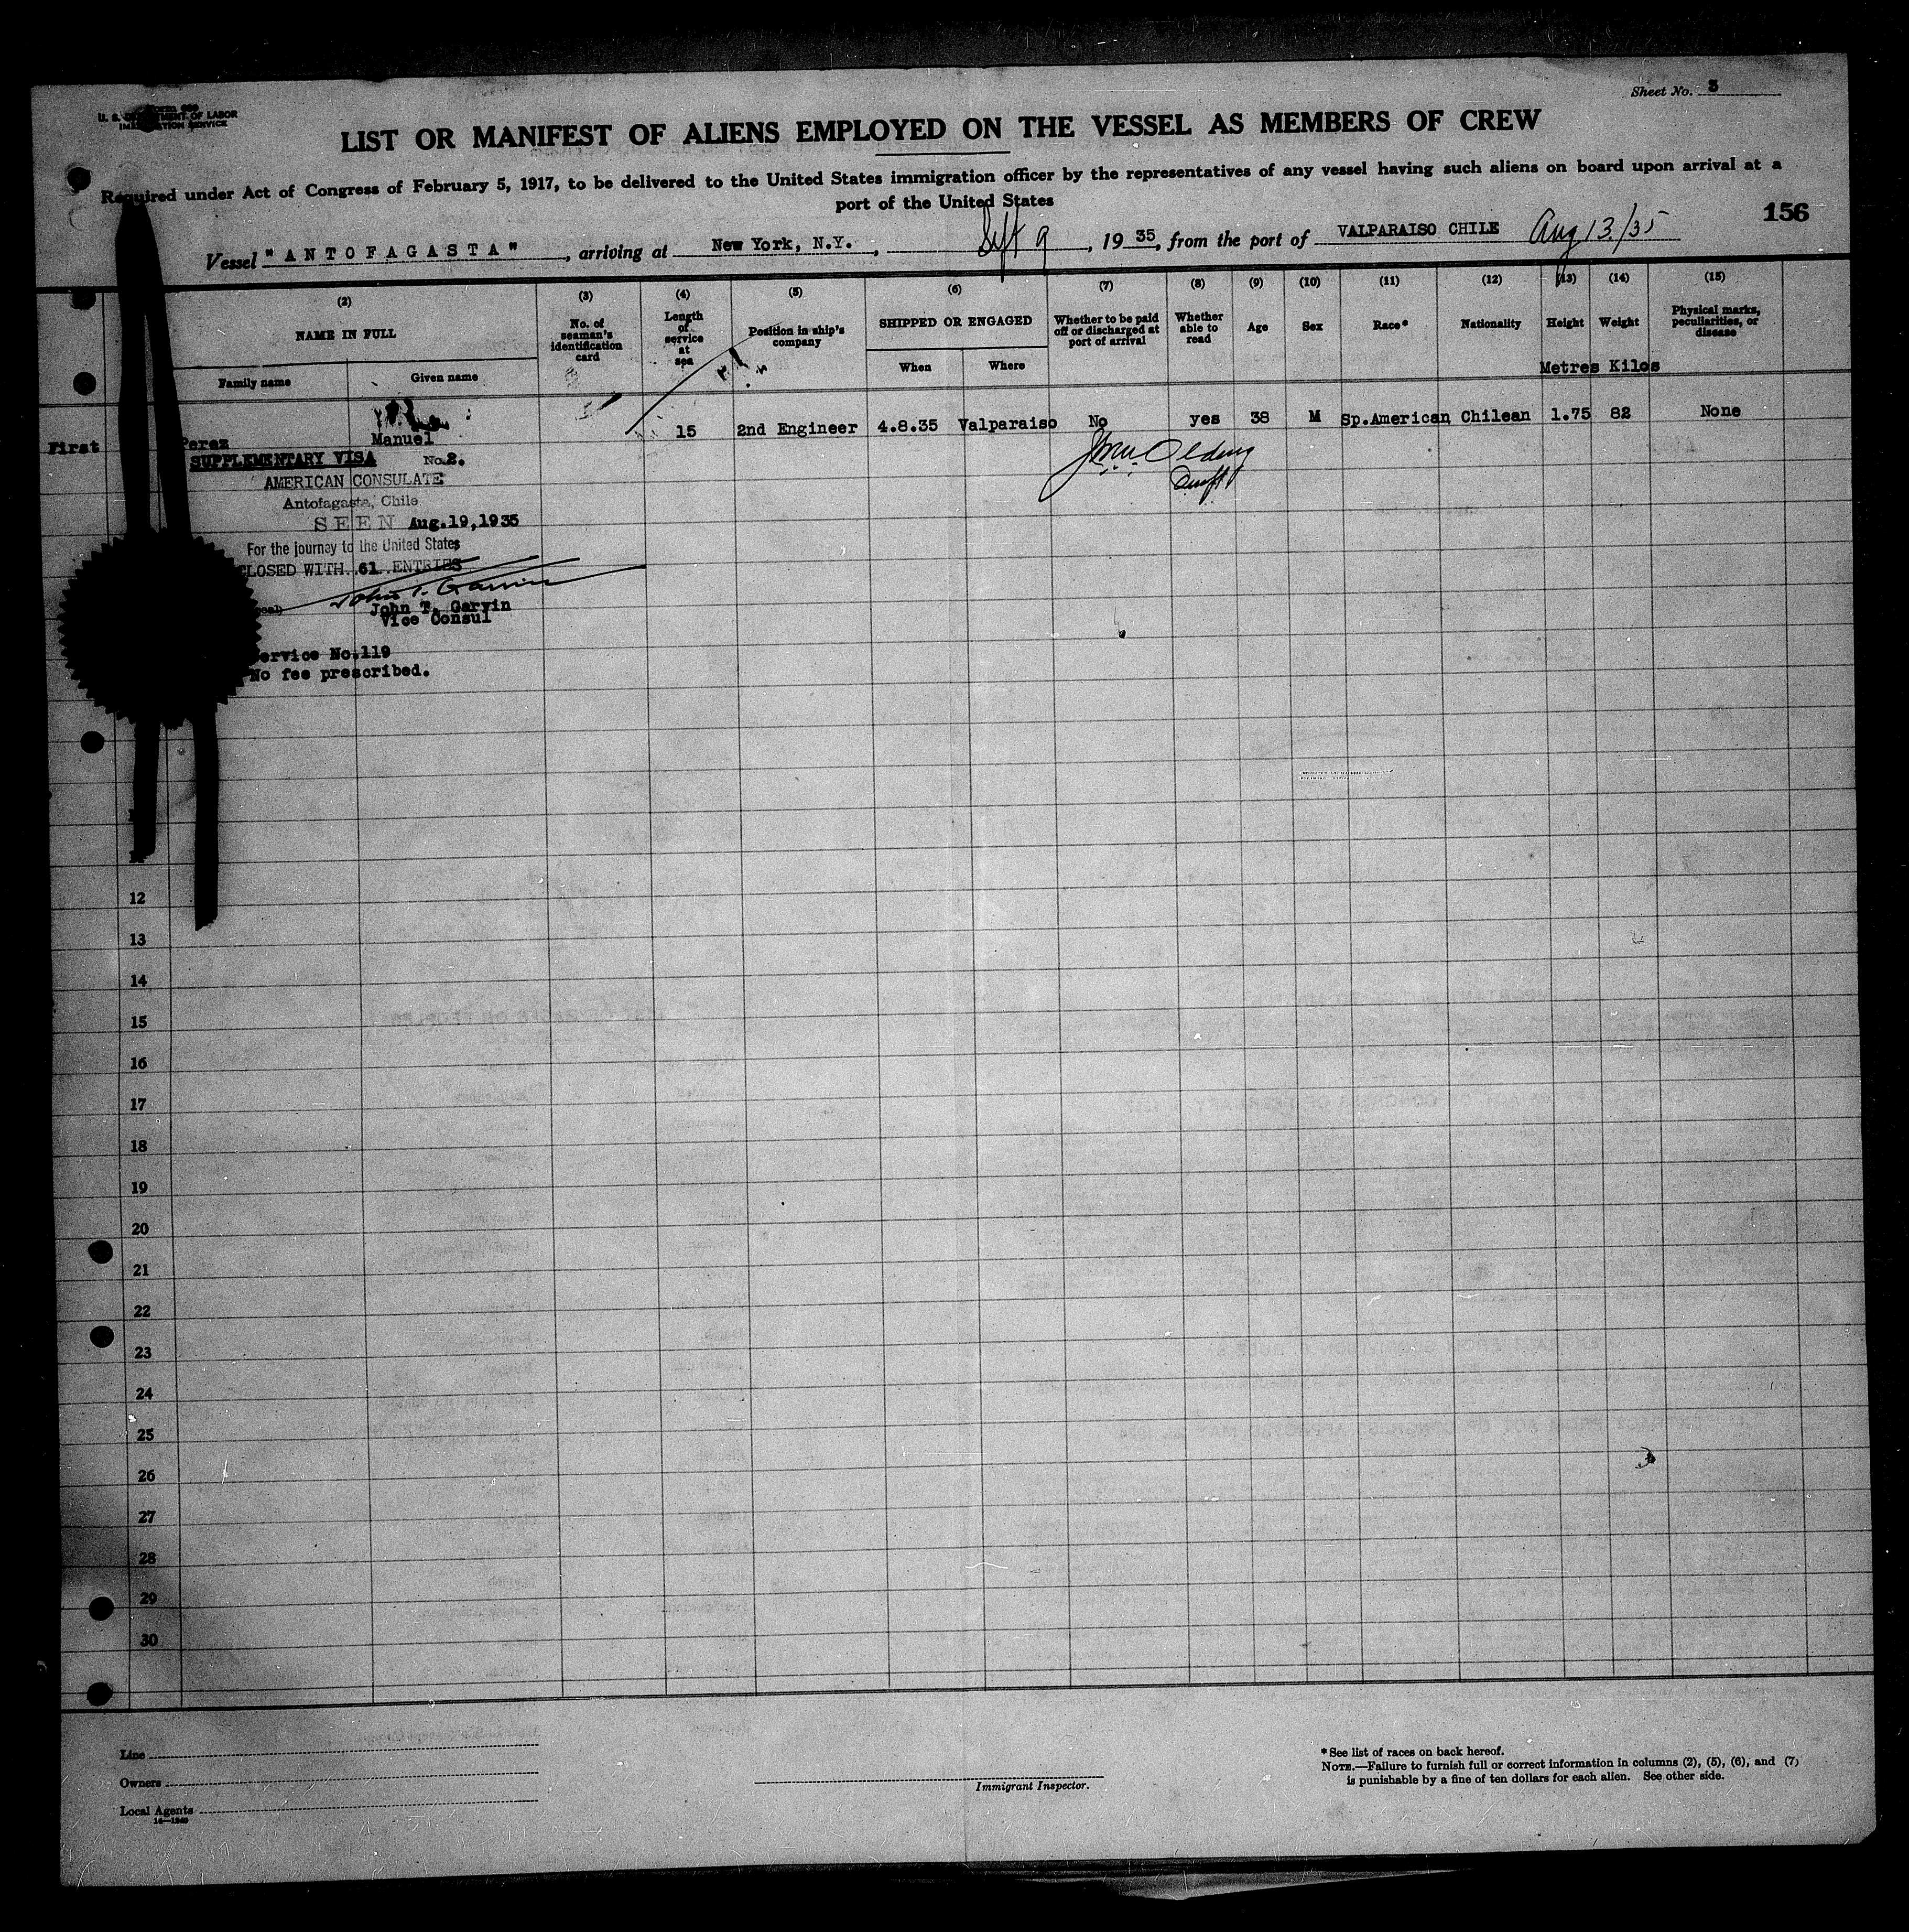 Sheet No. 3
Form 680
U. S. DEPARTMENT OF LABOR
IMMIGRATION SERVICE
LIST OR MANIFEST OF ALIENS EMPLOYED ON THE VESSEL AS MEMBERS OF CREW
Required under Act of Congress of February 5, 1917, to be delivered to the United States immigration officer by the representatives of any vessel having such aliens on board upon arrival at a
port of the United States
156
Vessel "ANTOFAGASTA", arriving at New York, N.Y., Sept 9, 1935, from the port of VALPARAISO CHILE Aug 13/35
(2) (3) (4) (5) (6) (7) (8) (9) (10) (11) (12) (13) (14) (15)
NAME IN FULL
Family name
Given name
No. of seaman's identification card
Length of service at sea
Position in ship's company
SHIPPED OR ENGAGED
When
Where
Whether to be paid off or discharged at port of arrival
Whether able to read
Age
Sex
Race*
Nationality
Height
Weight
Physical marks, peculiarities, or disease
Metres Kilos
First Perez Manuel 15 2nd Engineer 4.8.35 Valparaiso No yes 38 M Sp.American Chilean 1.75 82 None
SUPPLEMENTARY VISA No.2.
AMERICAN CONSULATE
Antofagasta, Chile
SEEN Aug.19,1935
For the journey to the United States
CLOSED WITH 61 ENTRIES
John T. Garvin
John T. Garvin
Vice Consul
Service No.119
No fee prescribed.
12
13
14
15
16
17
18
19
20
21
22
23
24
25
26
27
28
29
30
Line
Owners
Local Agents
Immigrant Inspector.
*See list of races on back hereof.
NOTE.—Failure to furnish full or correct information in columns (2), (5), (6), and (7)
is punishable by a fine of ten dollars for each alien. See other side.